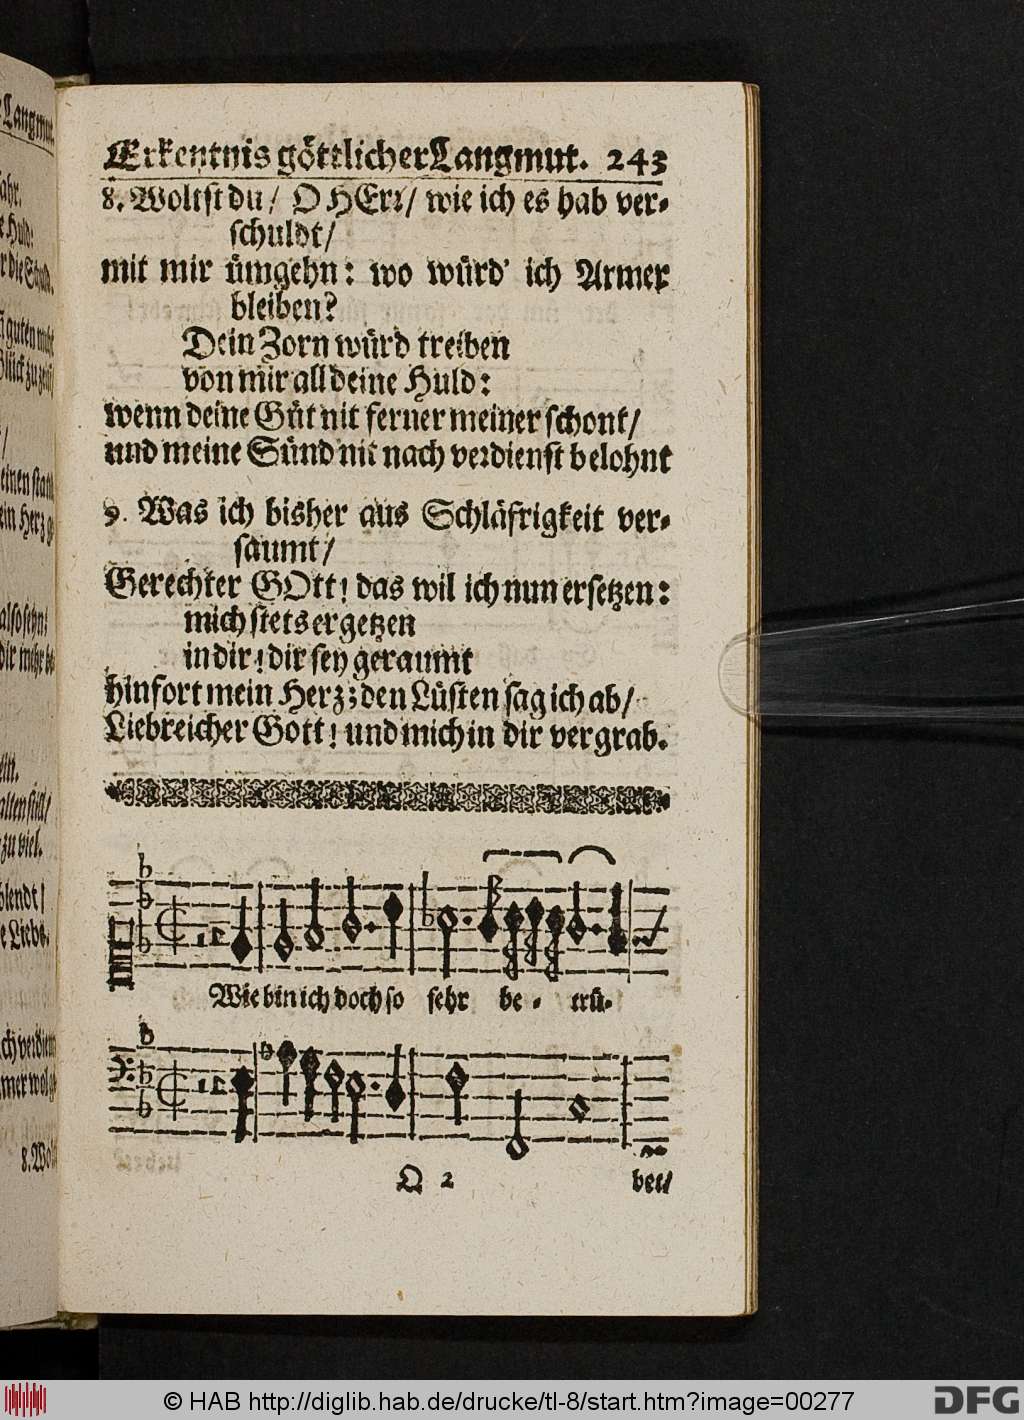 Erkentnis göttlicher Langmut. 243
8. Woltst du / O HErr / wie ich es hab ver-
schuldt /
mit mir ümgehn: wo würd' ich Armer
bleiben?
Dein Zorn würd treiben
von mir all deine Huld:
wenn deine Güt nit ferner meiner schont /
und meine Sünd nit nach verdienst belohnt
9. Was ich bisher aus Schläfrigkeit ver-
saumt /
Gerechter GOtt! das wil ich nun ersetzen:
mich stets ergetzen
in dir! dir sey geraumt
hinfort mein Herz; den Lüsten sag ich ab /
Liebreicher Gott! und mich in dir vergrab.
Wie bin ich doch so sehr be- trü-
Q 2 bet /
Langmut.
8. Wol
© HAB http://diglib.hab.de/drucke/tl-8/start.htm?image=00277
DFG